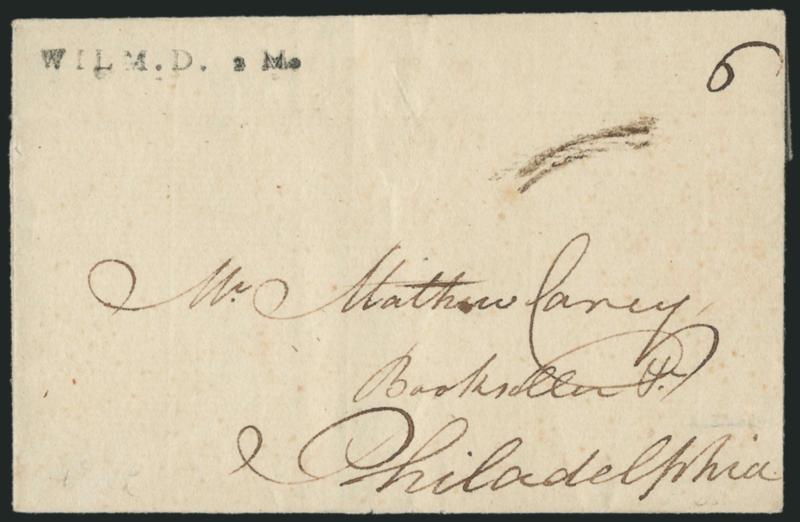 WILM.D. 2 M.
6
Mr. Mathew Carey
Bookseller &c.
Philadelphia